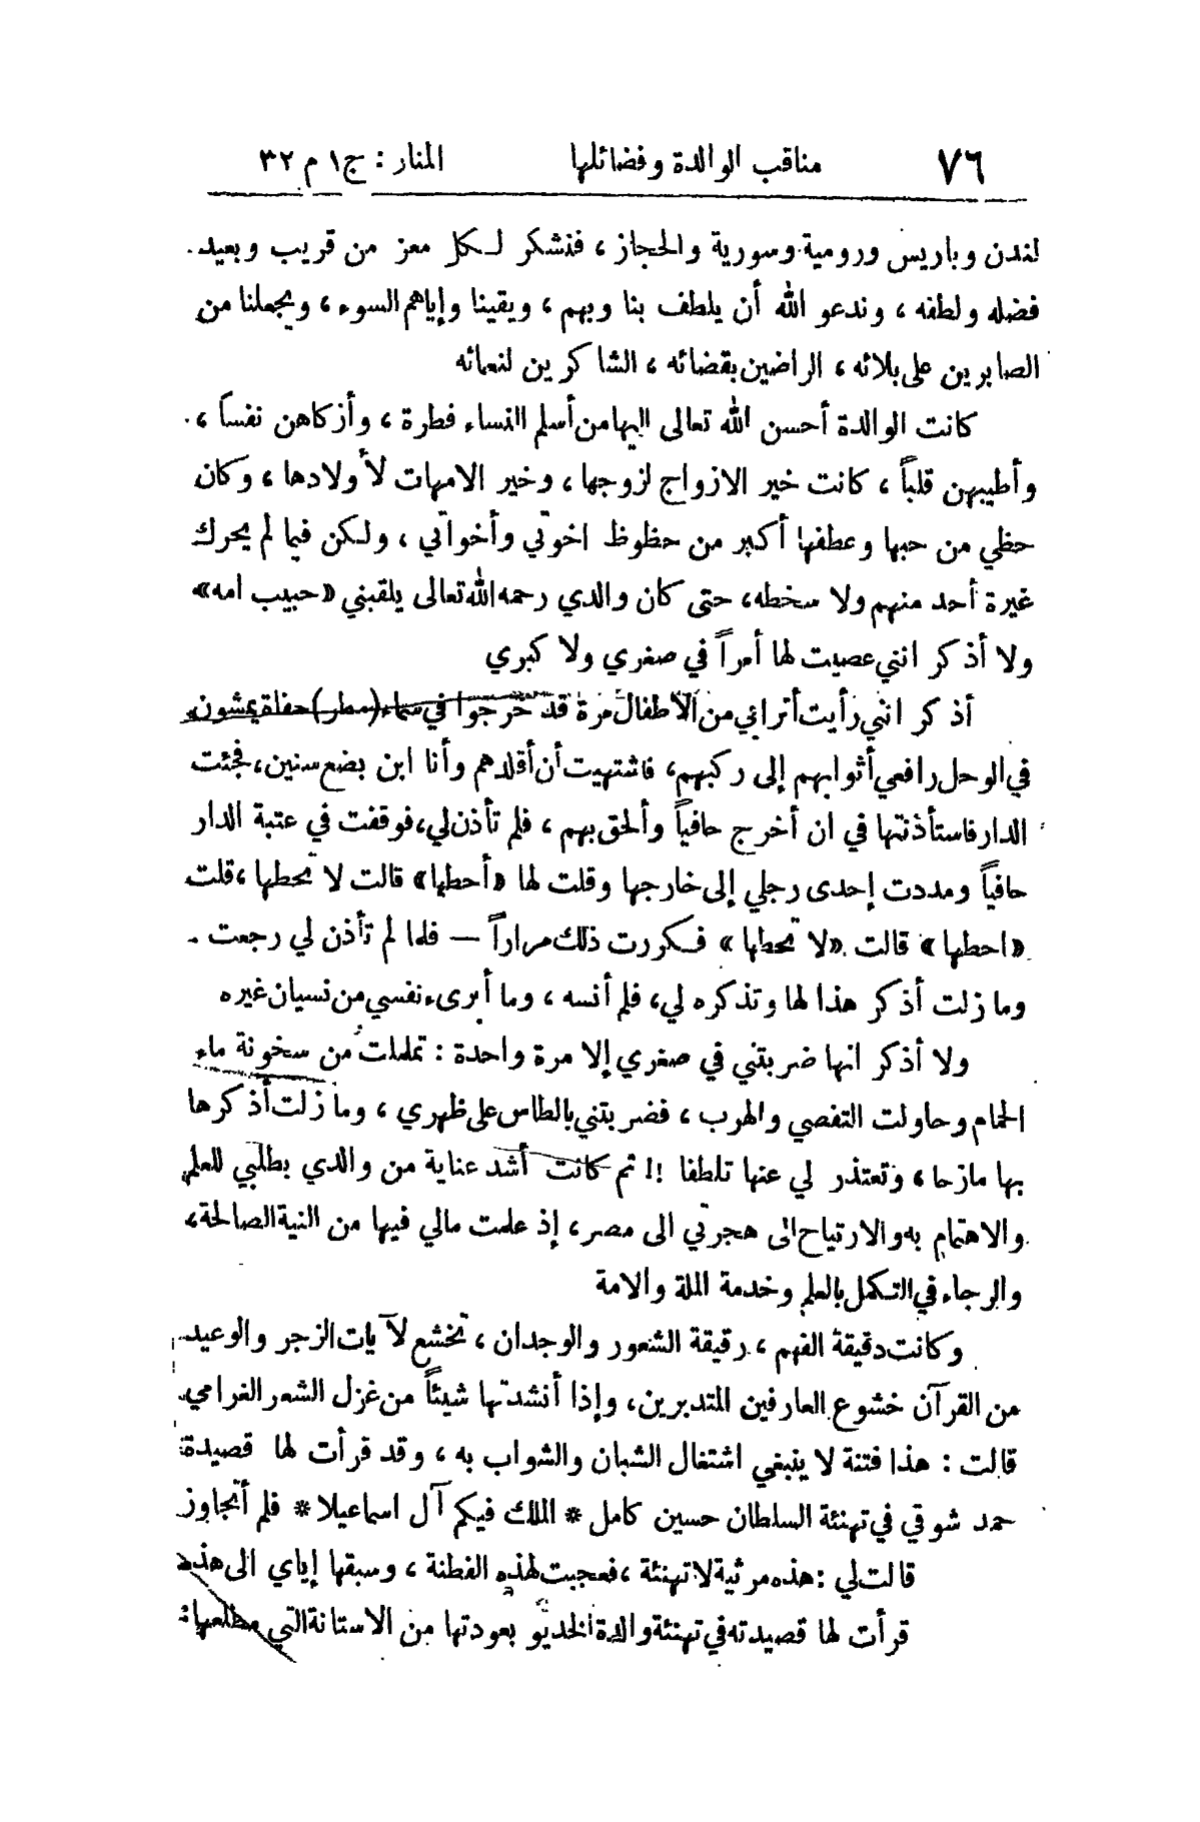 ٧٦ مناقب الوالدة وفضائلها المنار : ج ١ م ٣٢
لندن وباريس ورومية وسورية والحجاز ، فنشكر لكل معز من قريب وبعيد
فضله ولطفه ، وندعو الله أن يلطف بنا وبهم ، ويقينا وإياهم السوء ، ويجعلنا من
الصابرين على بلائه ، الراضين بقضائه ، الشاكرين لنعمائه
كانت الوالدة أحسن الله تعالى اليها من أسلم النساء فطرة ، وأزكاهن نفساً ،
وأطيبهن قلباً ، كانت خير الازواج لزوجها ، وخير الامهات لأولادها ، وكان
حظي من حبها وعطفها أكبر من حظوظ اخوتي وأخواتي ، ولكن فيما لم يحرك
غيرة أحد منهم ولا سخطه، حتى كان والدي رحمه الله تعالى يلقبني «حبيب امه»
ولا أذكر انني عصيت لها أمراً في صغري ولا كبري
أذكر انني رأيت أترابي من الأطفال مرة قد خرجوا في سماء (مطر) حفاة يمشون
في الوحل رافعي أثوابهم إلى ركبهم، فاشتهيت أن أقلدهم وأنا ابن بضع سنين، فجئت
الدار فاستأذنتها في ان أخرج حافياً وألحق بهم ، فلم تأذن لي، فوقفت في عتبة الدار
حافياً ومددت إحدى رجلي إلى خارجها وقلت لها «أحطها» قالت لا تحطها ، قلت
«احطها» قالت «لا تحطها» فكررت ذلك مراراً — فلما لم تأذن لي رجعت .
وما زلت أذكر هذا لها وتذكره لي، فلم أنسه ، وما أبرىء نفسي من نسيان غيره
ولا أذكر انها ضربتني في صغري إلا مرة واحدة : تململت من سخونة ماء
الحمام وحاولت التفصي والهرب ، فضربتني بالطاس على ظهري ، وما زلت أذكرها
بها مازحا ، وتعتذر لي عنها تلطفا !! ثم كانت أشد عناية من والدي بطلبي للعلم
والاهتمام به والارتياح الى هجرتي الى مصر ، إذ علمت مالي فيها من النية الصالحة ،
والرجاء في التكمل بالعلم وخدمة الملة والامة
وكانت دقيقة الفهم ، رقيقة الشعور والوجدان ، تخشع لآيات الزجر والوعيد
من القرآن خشوع العارفين المتدبرين، وإذا أنشدتها شيئاً من غزل الشعر الغرامي
قالت : هذا فتنة لا ينبغي اشتغال الشبان والشواب به ، وقد قرأت لها قصيدة
حمد شوقي في تهنئة السلطان حسين كامل * الملك فيكم آل اسماعيلا * فلم أتجاوز
قالت لي : هذه مرثية لا تهنئة ، فعجبت لهذه الفطنة ، وسبقها إياي الى هذه
قرأت لها قصيدته في تهنئة والدة الخديو بعودتها من الاستانة التي مطلعها :